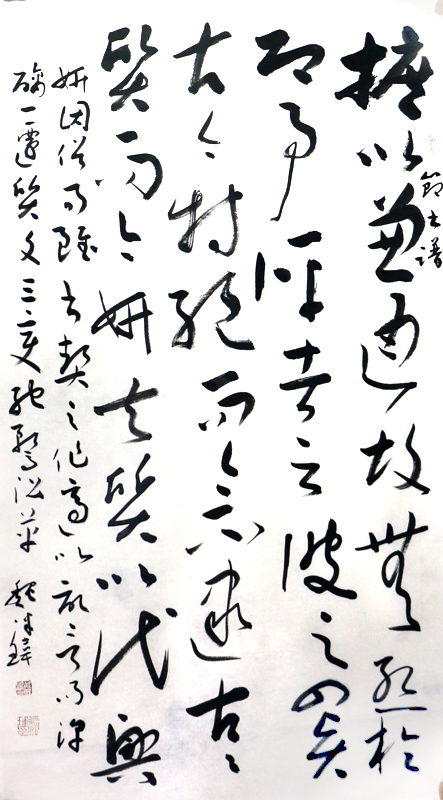 摭以兼通故無慙於
節書譜
即事評者云彼之四賢
古今特絕而今不逮古古
質而今妍夫質以代興
妍因俗易雖書契之作適以記言而淳
醨一遷質文三變馳騖沿革